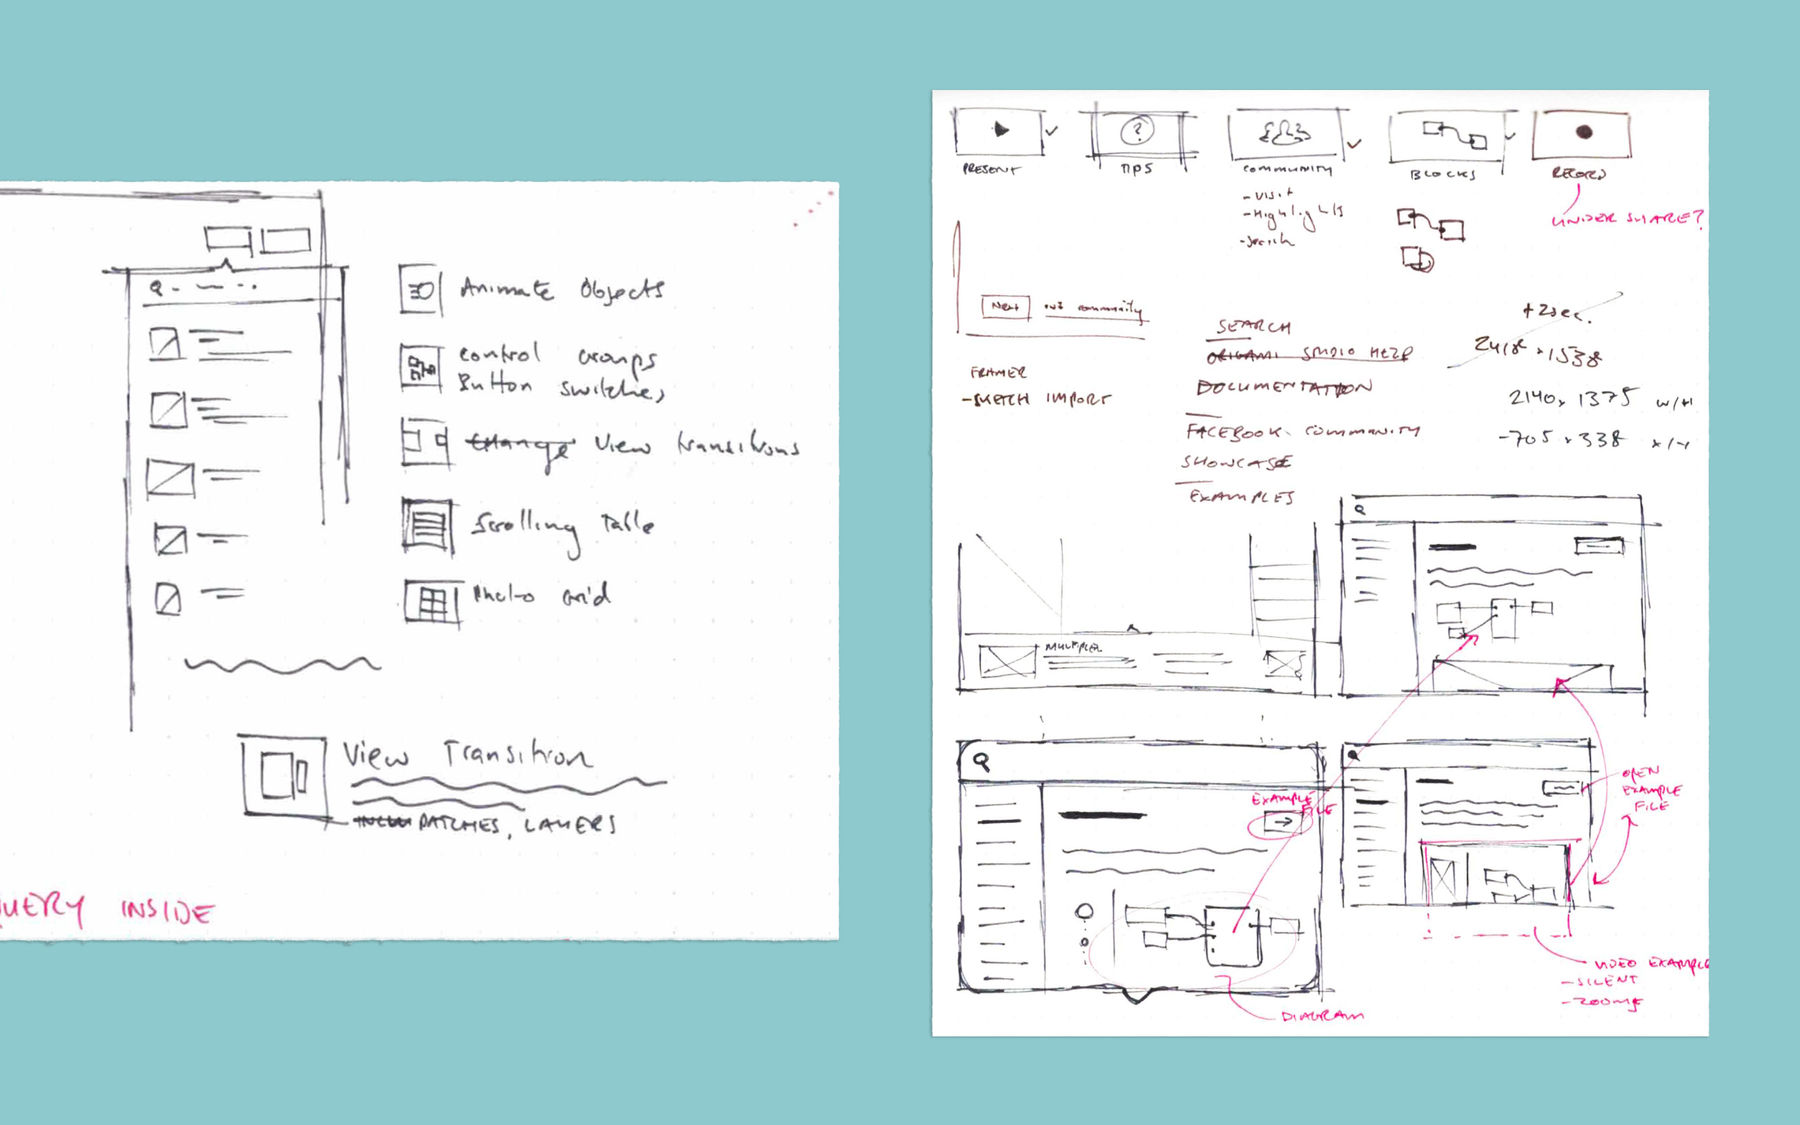 Animate Objects
Control Groups
Button switches
Change View transitions
Scrolling Table
Photo Grid
View Transition
PATCHES, LAYERS
QUERY INSIDE
PRESENT
TIPS
COMMUNITY
BLOCKS
RECORD
- Visit
- Highlights
- Search
UNDER SHARE?
Next
community
SEARCH
ORIGAMI STUDIO HELP
DOCUMENTATION
FACEBOOK COMMUNITY
SHOWCASE
EXAMPLES
FRAMER
- SKETCH IMPORT
+2sec.
2418 x 1538
2140 x 1375 w/H
-705 x 338 x/Y
EXAMPLE
FILE
OPEN
EXAMPLE
FILE
DIAGRAM
VIDEO EXAMPLE
- SILENT